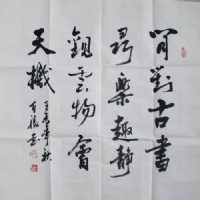 閒對古書
尋樂趣靜
觀雲物會
天機
壬辰年秋